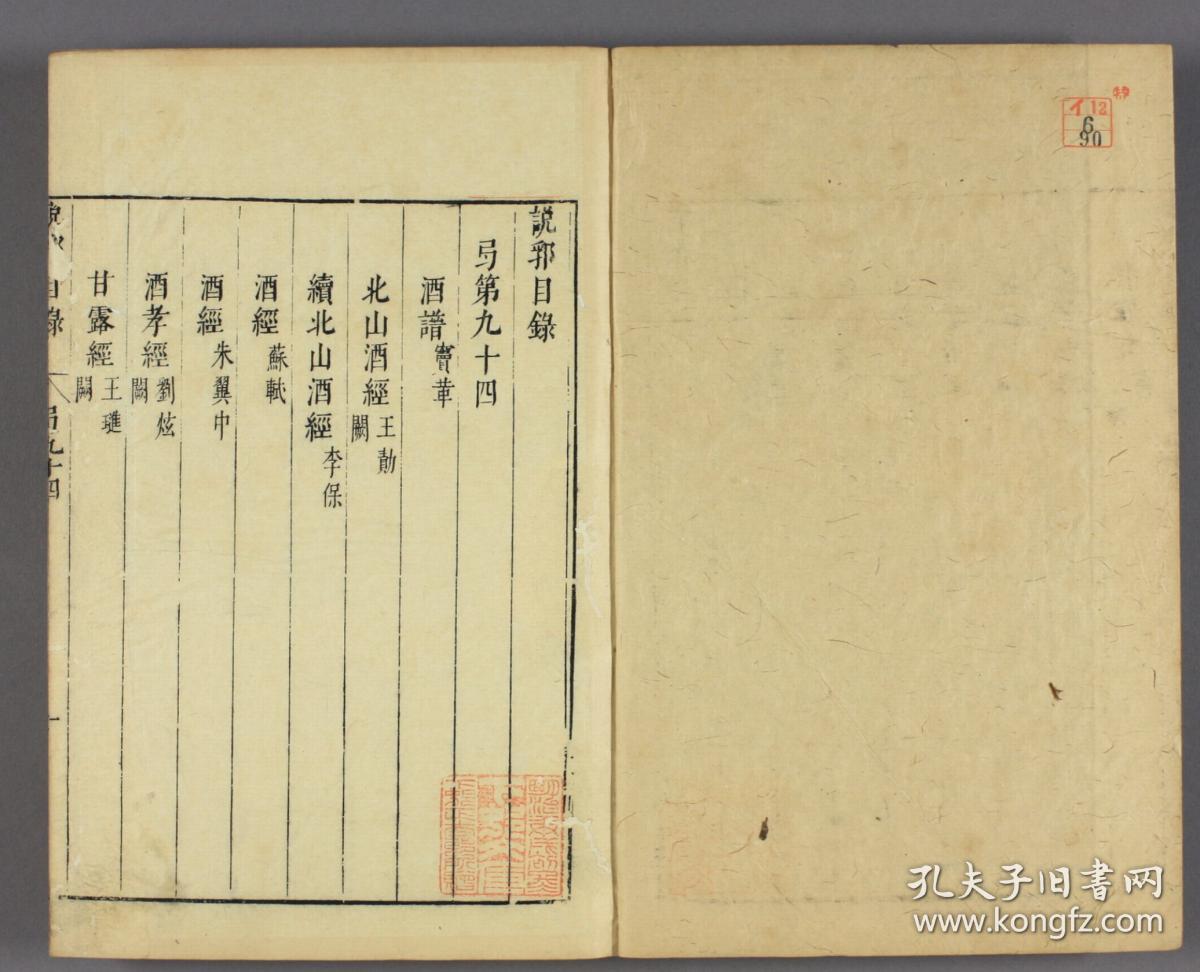 説郛目錄
弓第九十四
酒譜 竇苹
北山酒經 王勣 闕
續北山酒經 李保
酒經 蘇軾
酒經 朱翼中
酒孝經 劉炫 闕
甘露經 王璡 闕
目錄
弓九十四
一
特
イ12
6
90
孔夫子旧书网
www.kongfz.com